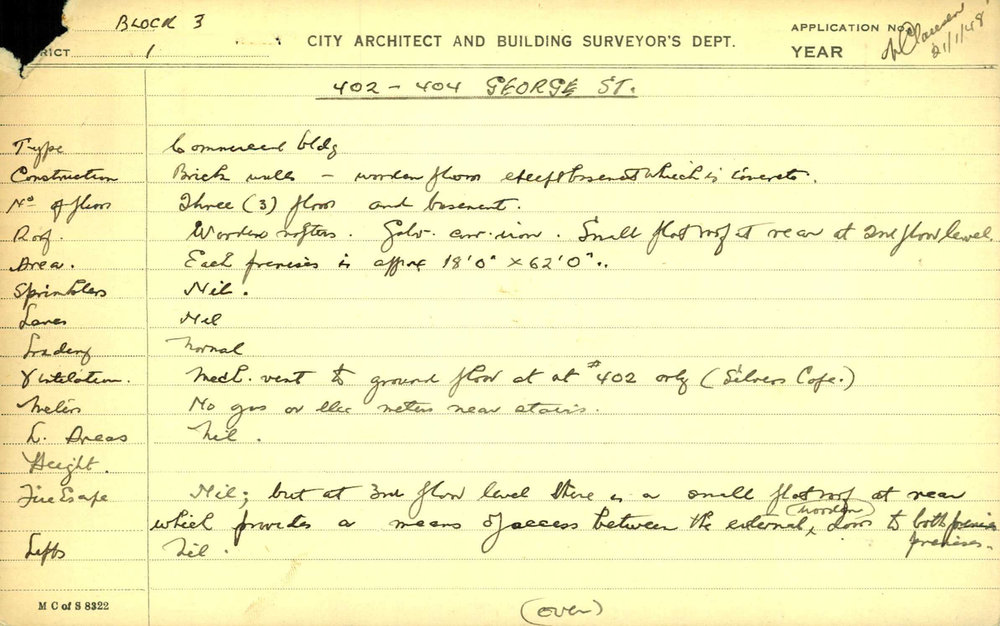 BLOCK 3
RICT 1 CITY ARCHITECT AND BUILDING SURVEYOR'S DEPT. APPLICATION NO.
YEAR 21/1/48
402 - 404 GEORGE ST.
Type Commercial bldg
Construction Brick walls - wooden floors except basement which is concrete.
No of floors Three (3) floors and basement.
Roof. Wooden rafters. Galv. corr. iron. Small flat roof at rear at 2nd floor level.
Area. Each premises is approx 18'0" x 62'0"..
Sprinklers Nil.
Lanes Nil
Loading Normal
Ventilation. Mech. vent to ground floor at at #402 only (Silvers Cafe.)
Meters No gas or elec meters near stairs.
L. Areas Nil.
Height.
Fire Escape Nil; but at 3rd floor level there is a small flat roof at rear
which provides a means of access between the external (wooden) doors to both
premises.
Lifts Nil.
M C of S 8322
(over)